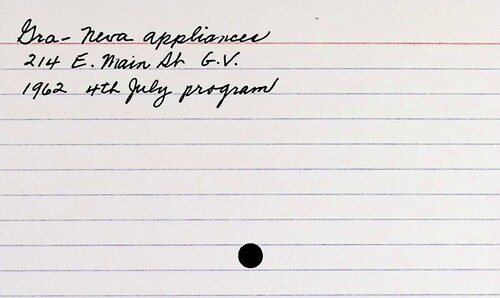 Gra-Neva appliances
214 E. Main St G.V.
1962 4th July program